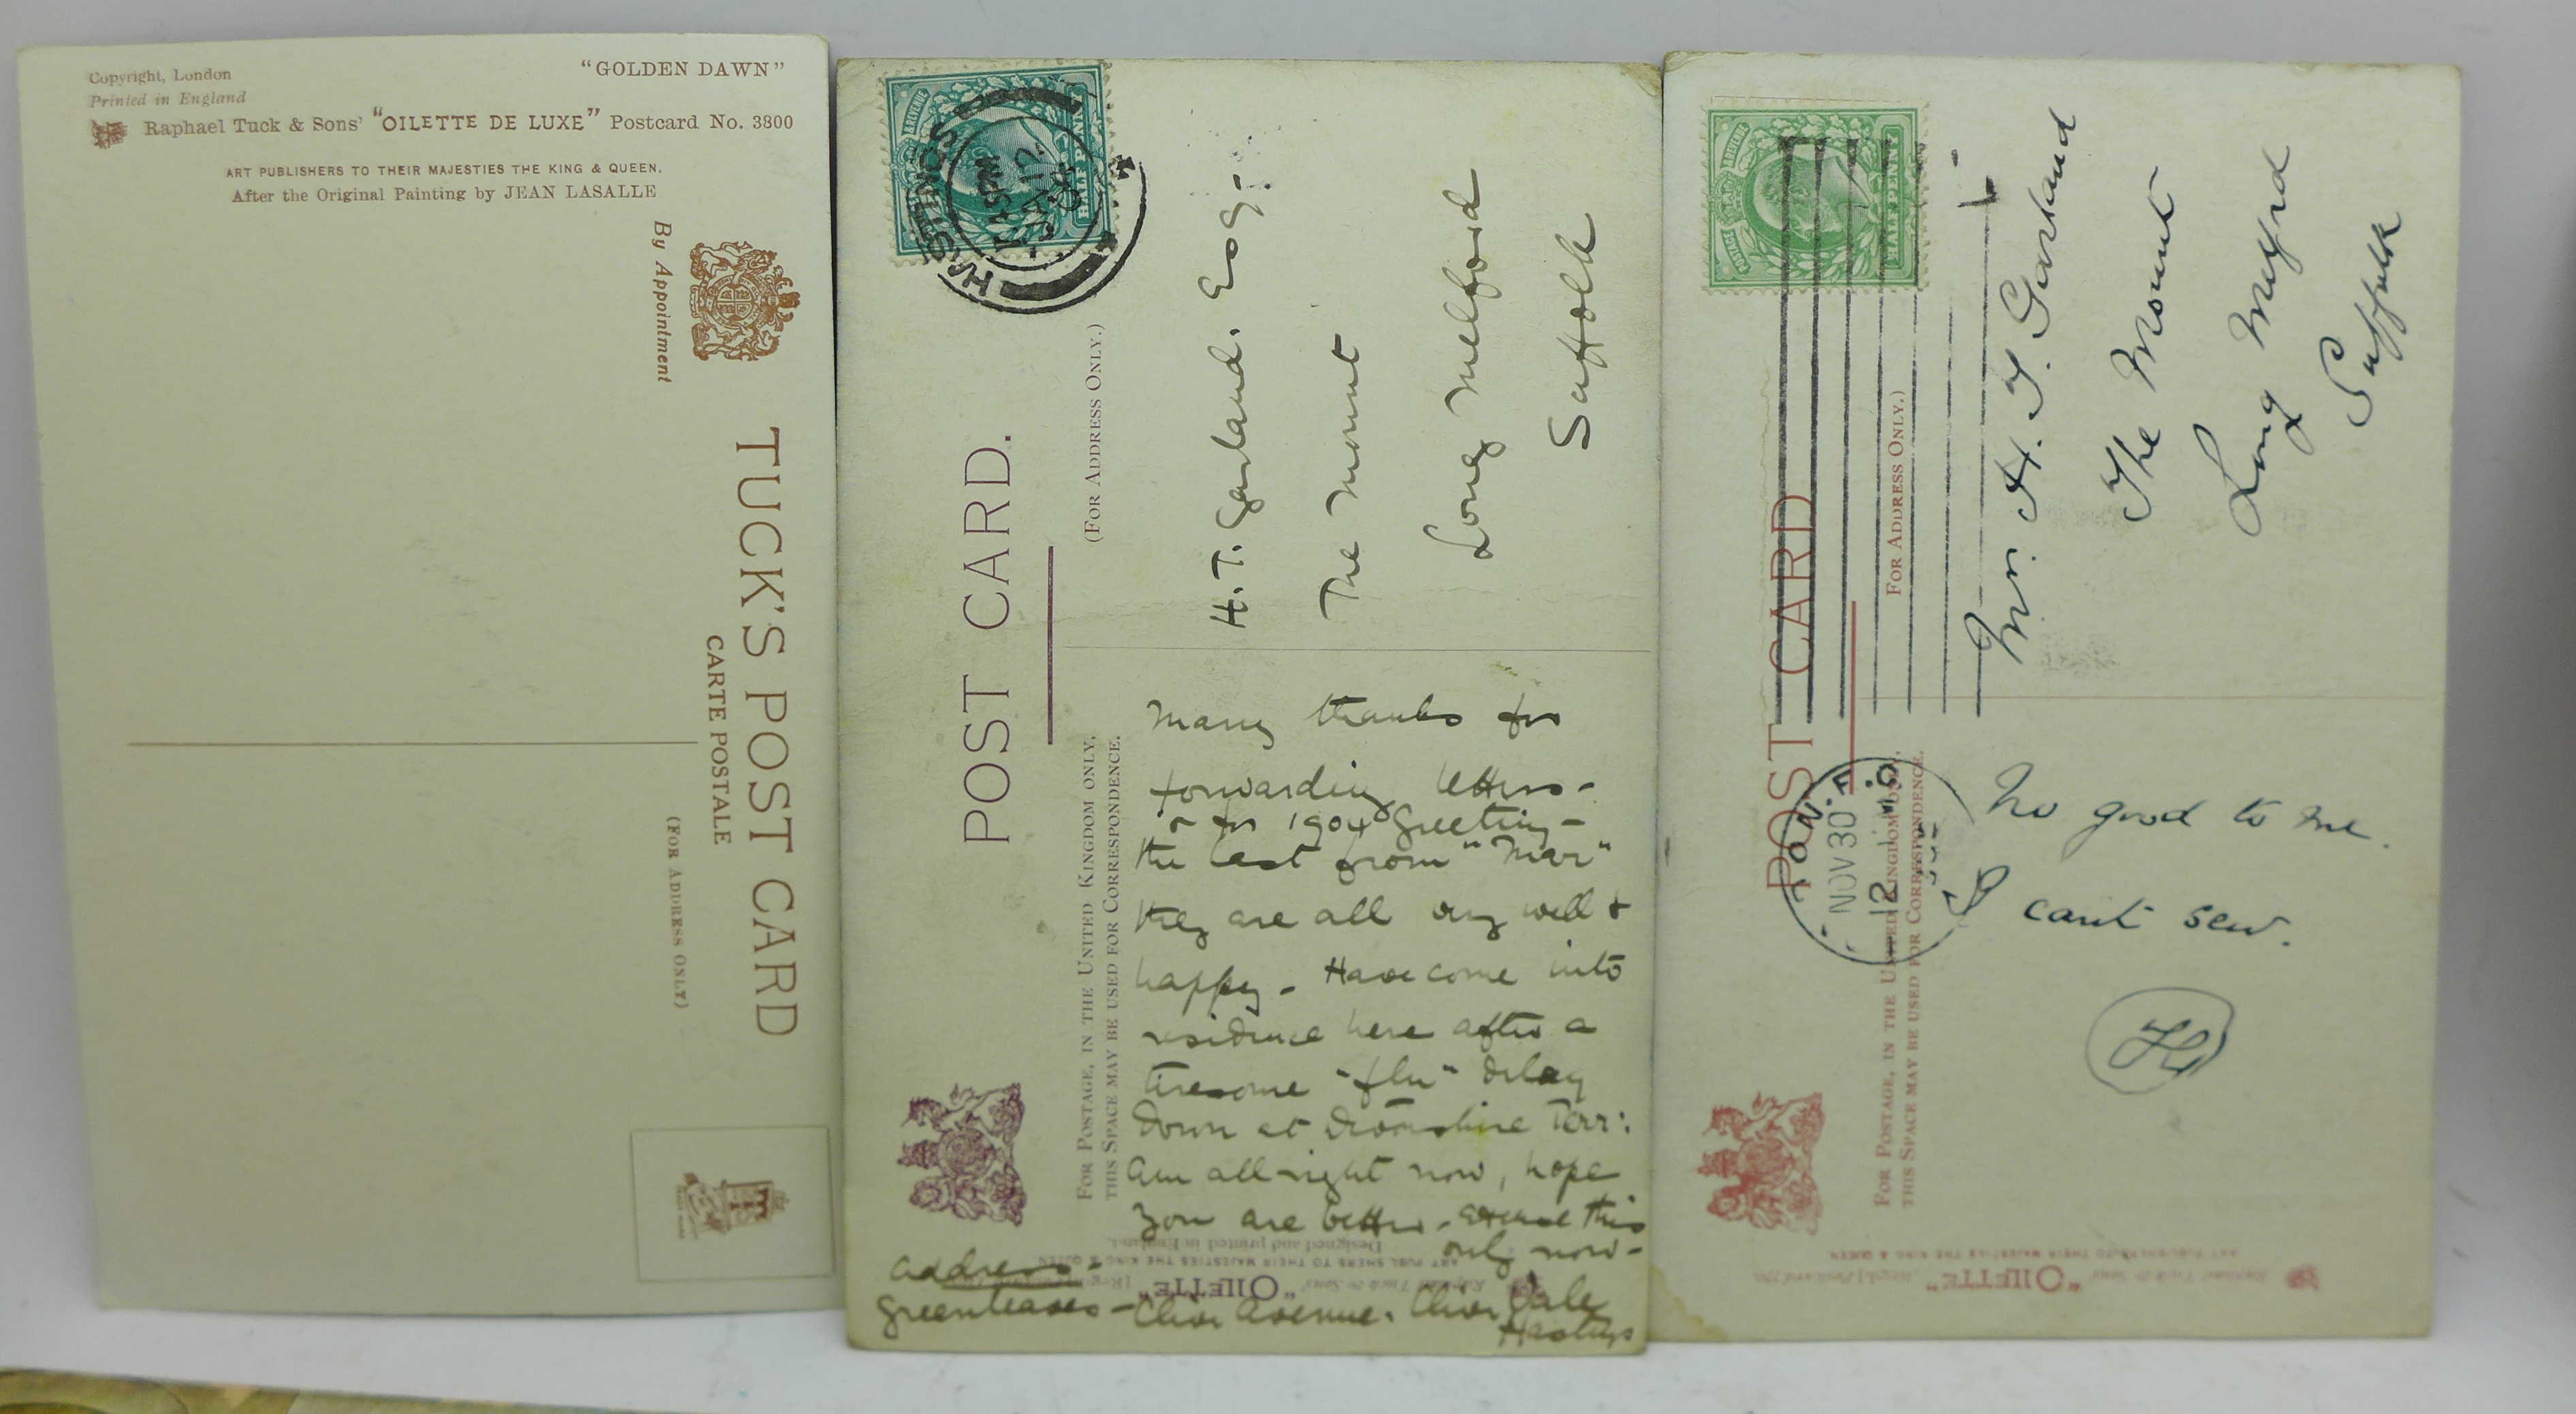 Copyright, London
Printed in England
"GOLDEN DAWN"
Raphael Tuck & Sons' "OILETTE DE LUXE" Postcard No. 3800
ART PUBLISHERS TO THEIR MAJESTIES THE KING & QUEEN.
After the Original Painting by JEAN LASALLE
By Appointment
TUCK'S POST CARD
CARTE POSTALE
(FOR ADDRESS ONLY)
POSTAGE REVENUE
HALF PENNY
HASTINGS
JA 12
04
POST CARD.
(FOR ADDRESS ONLY.)
FOR POSTAGE, IN THE UNITED KINGDOM ONLY,
THIS SPACE MAY BE USED FOR CORRESPONDENCE.
H.T. Garland. Esq-
The Mount
Long Melford
Suffolk
Many thanks for
forwarding letters-
& for 1904 greeting-
the last from "Mar"
they are all very well &
happy- Have come into
residence here after a
tiresome "flu" delay
down at Devonshire Terr:
am all right now, hope
you are better- excuse this
only now-
address-
Greenleaves- Clive Avenue. Clive Vale
Hastings
Raphael Tuck & Sons' "OILETTE" [Regd.]
ART PUBLISHERS TO THEIR MAJESTIES THE KING & QUEEN
Designed and printed in England.
POSTAGE REVENUE
HALFPENNY
NOV 30
12
POST CARD
FOR ADDRESS ONLY.)
FOR POSTAGE, IN THE UNITED KINGDOM ONLY,
THIS SPACE MAY BE USED FOR CORRESPONDENCE.
Mr. H. T. Garland
The Mount
Long Melford
Suffolk
No good to me.
I cant sew.
H
Raphael Tuck & Sons' "OILETTE" [Regd.] Postcard
ART PUBLISHERS TO THEIR MAJESTIES THE KING & QUEEN